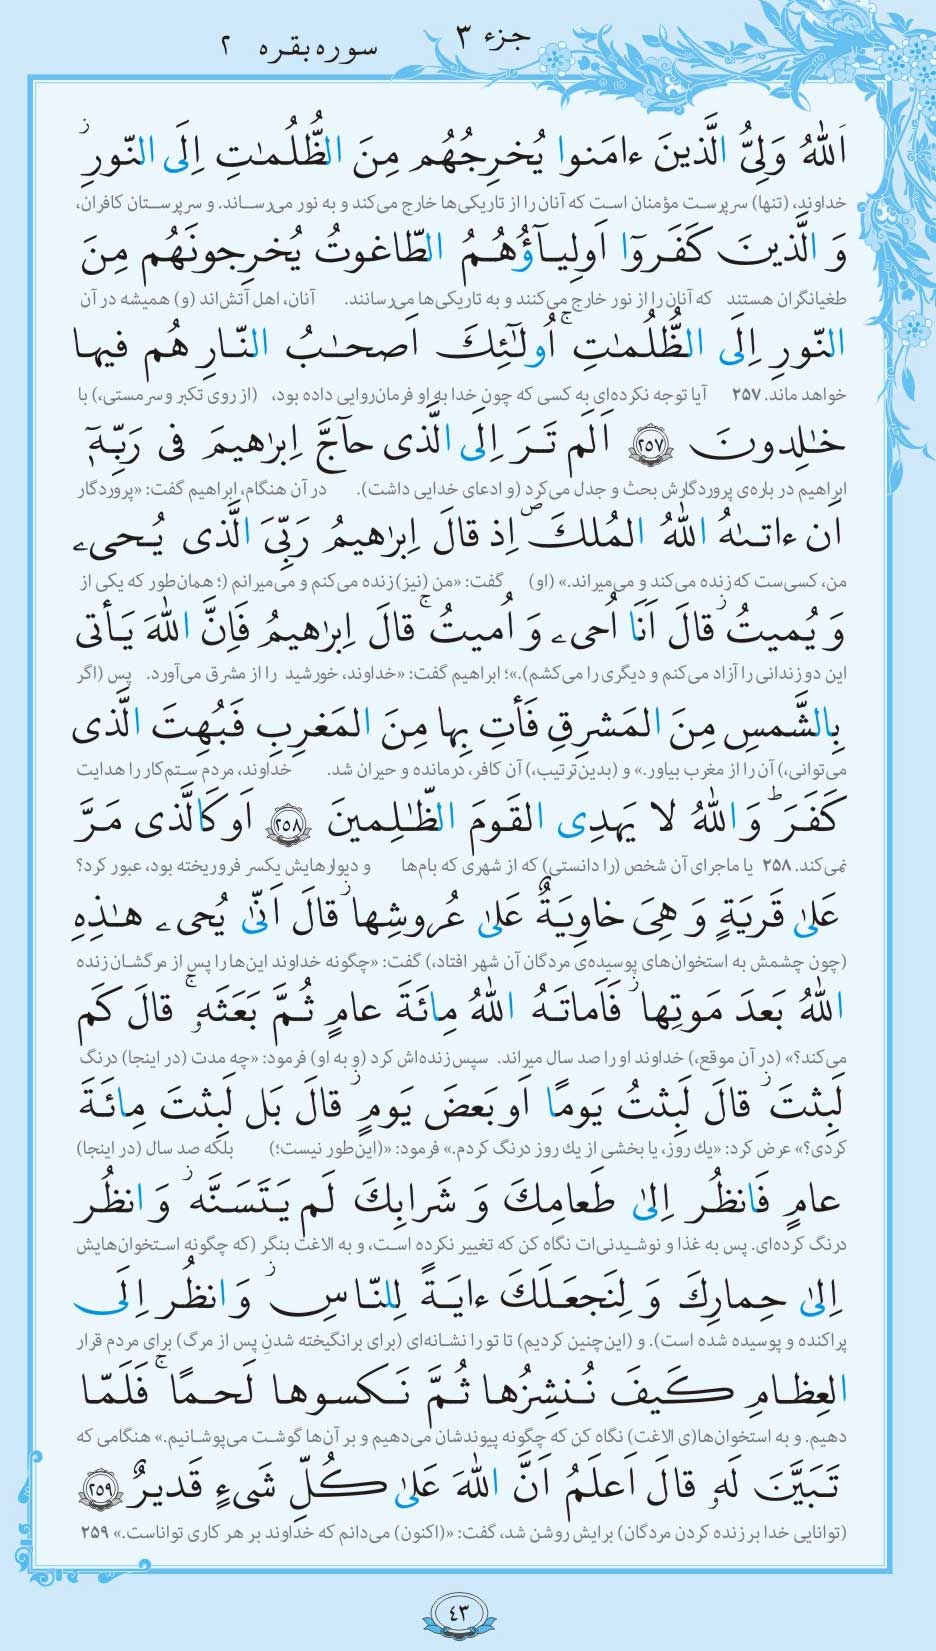 جزء ۳
سوره بقره ۲
اَللّٰهُ وَلِیُّ الَّذینَ ءامَنوا یُخرِجُهُم مِنَ الظُّلُمٰتِ اِلَی النّورِ ز
خداوند، (تنها) سرپرست مؤمنان است که آنان را از تاریکی‌ها خارج می‌کند و به نور می‌رساند. و سرپرستان کافران،
وَ الَّذینَ کَفَرَوٓا اَولِیـآؤُهُمُ الطّاغوتُ یُخرِجونَهُم مِنَ
طغیانگران هستند که آنان را از نور خارج می‌کنند و به تاریکی‌ها می‌رسانند. آنان، اهل آتش‌اند (و) همیشه در آن
النّورِ اِلَی الظُّلُمٰتِ ۚ اُولٰٓئِکَ اَصحٰبُ النّارِ هُم فیها
خواهد ماند. ۲۵۷ آیا توجه نکرده‌ای به کسی که چون خدا به او فرمان‌روایی داده بود، (از روی تکبر و سرمستی،) با
خٰلِدونَ ۲۵۷ اَلَم تَرَ اِلَی الَّذی حآجَّ اِبرٰهیمَ فی رَبِّهٓ
ابراهیم در باره‌ی پروردگارش بحث و جدل می‌کرد (و ادعای خدایی داشت). در آن هنگام، ابراهیم گفت: «پروردگار
اَن ءاتىٰهُ اللّٰهُ المُلکَ ص اِذ قالَ اِبرٰهیمُ رَبِّیَ الَّذی یُحیۦ
من، کسی‌ست که زنده می‌کند و می‌میراند.» (او) گفت: «من (نیز) زنده می‌کنم و می‌میرانم (؛ همان‌طور که یکی از
وَ یُمیتُ ز قالَ اَنَا اُحیۦ وَ اُمیتُ ۚ قالَ اِبرٰهیمُ فَاِنَّ اللّٰهَ یَأتی
این دو زندانی را آزاد می‌کنم و دیگری را می‌کشم).»؛ ابراهیم گفت: «خداوند، خورشید را از مشرق می‌آورد. پس (اگر
بِالشَّمسِ مِنَ المَشرِقِ فَأتِ بِها مِنَ المَغرِبِ فَبُهِتَ الَّذی
می‌توانی،) آن را از مغرب بیاور.» و (بدین‌ترتیب،) آن کافر، درمانده و حیران شد. خداوند، مردم ستم‌کار را هدایت
کَفَرَ ط وَ اللّٰهُ لا یَهدِی القَومَ الظّٰلِمینَ ۲۵۸ اَو کَالَّذی مَرَّ
نمی‌کند. ۲۵۸ یا ماجرای آن شخص (را دانستی) که از شهری که بام‌ها و دیوارهایش یکسر فروریخته بود، عبور کرد؟
عَلیٰ قَریَةٍ وَ هِیَ خاوِیَةٌ عَلیٰ عُروشِها ز قالَ اَنّیٰ یُحیۦ هٰذِهِ
(چون چشمش به استخوان‌های پوسیده‌ی مردگان آن شهر افتاد،) گفت: «چگونه خداوند این‌ها را پس از مرگشان زنده
اللّٰهُ بَعدَ مَوتِها ز فَاَماتَهُ اللّٰهُ مِائَةَ عامٍ ثُمَّ بَعَثَهٗ ۚ قالَ کَم
می‌کند؟» (در آن موقع،) خداوند او را صد سال میراند. سپس زنده‌اش کرد (و به او) فرمود: «چه مدت (در اینجا) درنگ
لَبِثتَ ز قالَ لَبِثتُ یَومًا اَو بَعضَ یَومٍ ز قالَ بَل لَبِثتَ مِائَةَ
کردی؟» عرض کرد: «یك روز، یا بخشی از یك روز درنگ کردم.» فرمود: «(این‌طور نیست؛) بلکه صد سال (در اینجا)
عامٍ فَانظُر اِلیٰ طَعامِکَ وَ شَرابِکَ لَم یَتَسَنَّه ز وَ انظُر
درنگ کرده‌ای. پس به غذا و نوشیدنی‌ات نگاه کن که تغییر نکرده است، و به الاغت بنگر (که چگونه استخوان‌هایش
اِلیٰ حِمارِکَ وَ لِنَجعَلَکَ ءایَةً لِلنّاسِ ز وَ انظُر اِلَی
پراکنده و پوسیده شده است). و (این‌چنین کردیم) تا تو را نشانه‌ای (برای برانگیخته شدنِ پس از مرگ) برای مردم قرار
العِظامِ کَیفَ نُنشِزُها ثُمَّ نَکسوها لَحمًا ۚ فَلَمّا
دهیم. و به استخوان‌ها(ی الاغت) نگاه کن که چگونه پیوندشان می‌دهیم و بر آن‌ها گوشت می‌پوشانیم.» هنگامی که
تَبَیَّنَ لَهٗ قالَ اَعلَمُ اَنَّ اللّٰهَ عَلیٰ کُلِّ شَیءٍ قَدیرٌ ۲۵۹
(توانایی خدا بر زنده کردن مردگان) برایش روشن شد، گفت: «(اکنون) می‌دانم که خداوند بر هر کاری تواناست.» ۲۵۹
۴۳